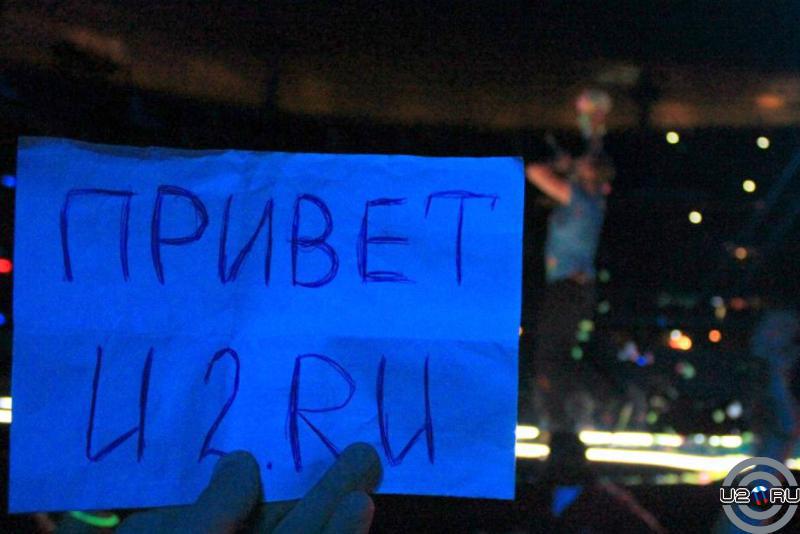 ПРИВЕТ
U2.RU
U2 RU